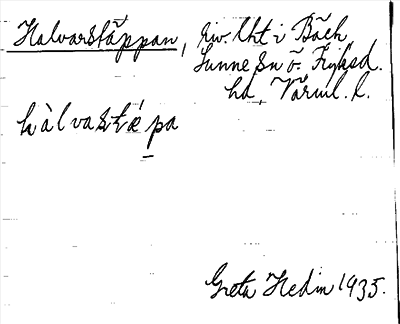 Halvarstäppan, riv. lht i Bäck,
Sunne sn Ö. Fryksd.
hd, Värml. l.
hàlvastæpa
Greta Hedin 1935.